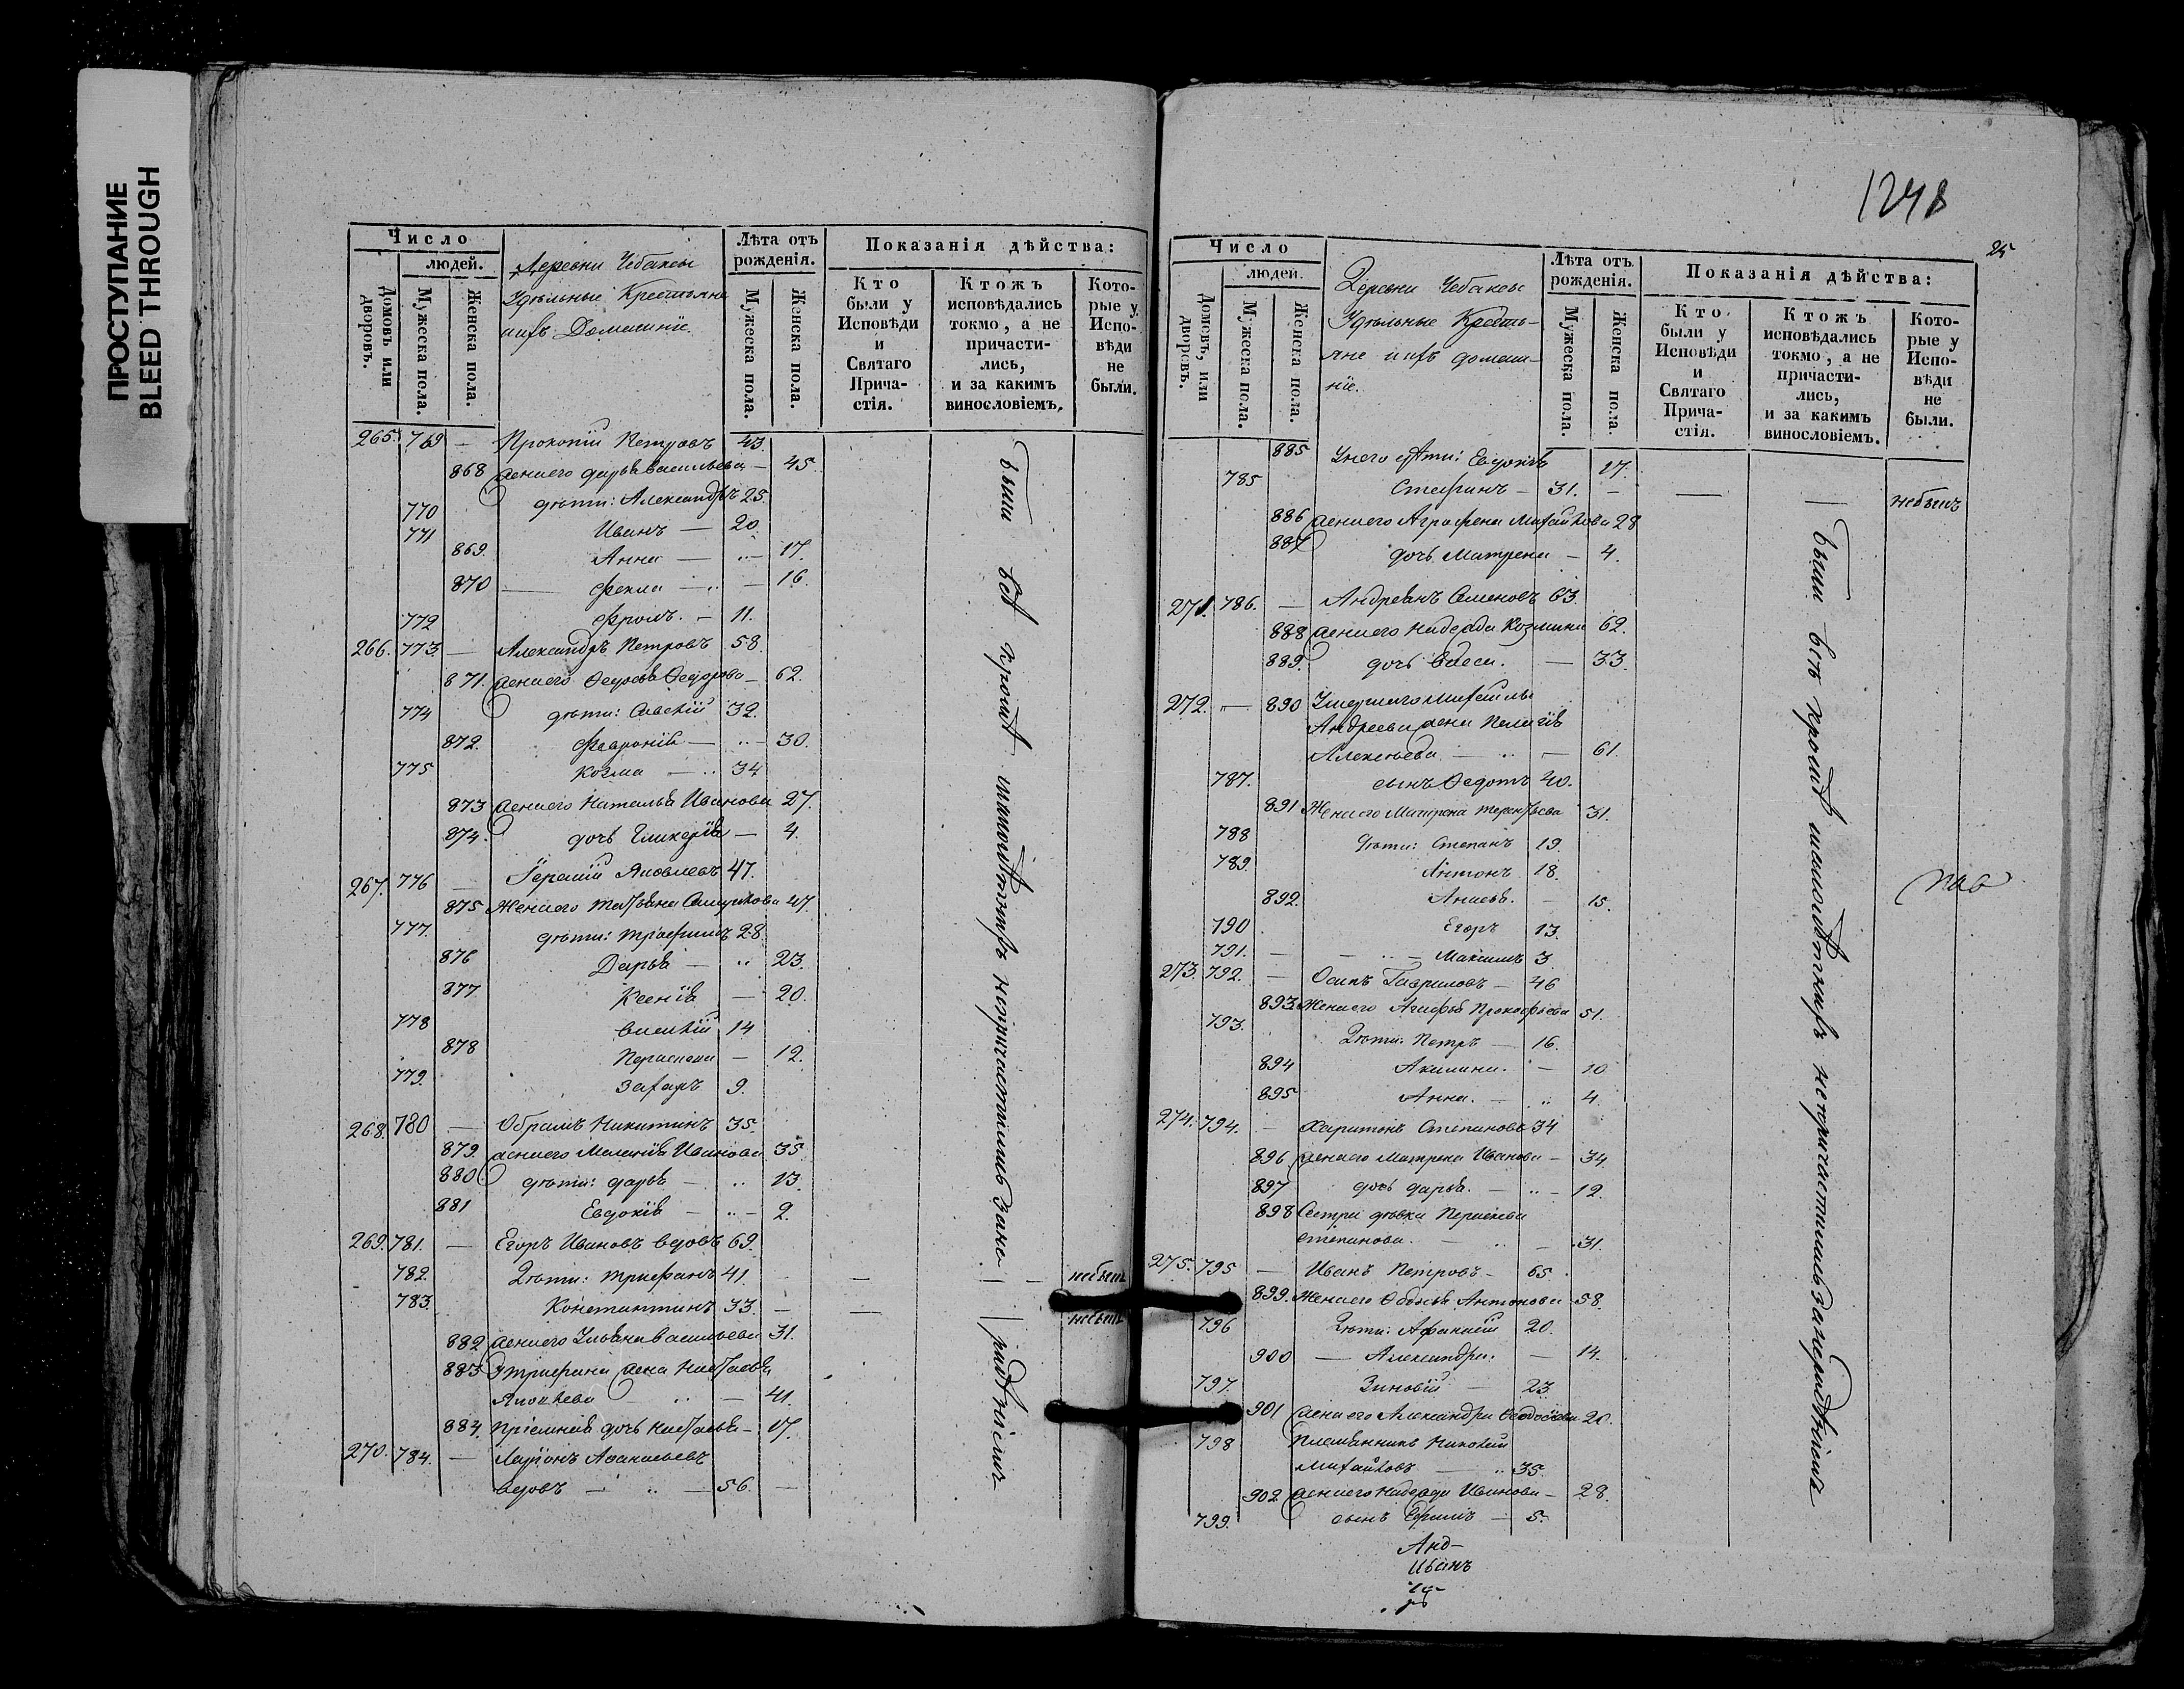 ПРОСТУПАНИЕ
BLEED THROUGH
Число
людей.
Домовъ или дворовъ.
Мужеска пола.
Женска пола.
Деревни Чебаксы
Удѣльныіе Крестьяне
ихъ Домашніе.
Лѣта отъ рожденія.
Мужеска пола.
Женска пола.
Показанія дѣйства:
Кто были у Исповѣди и Святаго Прича-стія.
Ктожъ исповѣдались токмо, а не причасти-лись, и за какимъ винословіемъ.
Кото-рые у Испо-вѣди не были.
265. 769 — Прокопій Петровъ 43.
868 жена его дарья васильева — 45.
770 дѣти: Александръ 25.
771 Иванъ — 20
869. Анна — 17.
870 Фекла — 16.
772 Фролъ. — 11.
266. 773. — Александръ Петровъ 58.
871. жена его Ѳедосья Ѳедорова — 62.
774 дѣти: 32.
872. Февронія — 30.
775 Козма — 34
873 жена его Наталья Иванова 27.
874. дочь Гликерія — 4.
267. 776 — Яковлевъ 47.
875 Жена его татьяна 47.
777. дѣти: трофимъ 28
876 Дарья — 23.
877 Ксенія — 20.
778 василій 14
878 Параскева — 12.
779. Захаръ 9.
268. 780 — Обрамъ Никитинъ 35.
879. жена его Меланія Иванова 35.
880 дѣти: дарья — 13.
881 Евдокія — 2.
269. 781. — Егоръ Ивановъ вдовъ 69.
782. Дѣти: трифанъ 41. — — — небылъ
783. Константинъ 33. — — небылъ
882 жена его Ульяна васильева 31.
883 У трифана жена Настасья
Яковлева — 41.
884. Пріемная дочь Настасья — 17.
270. 784. — Ларіонъ Афанасьевъ
вдовъ — 56. —
были всѣ кромѣ малолѣтнихъ непричастились за не
радѣніемъ
1248
25
Число
людей.
Домовъ, или дворовъ.
Мужеска пола.
Женска пола.
Деревни Чебаксы
Удѣльныіе Кресть-
яне ихъ домаш-
ніе.
Лѣта отъ рожденія.
Мужеска пола.
Женска пола.
Показанія дѣйства:
Кто были у Исповѣди и Святаго Прича-стія.
Ктожъ исповѣдались токмо, а не причасти-лись, и за какимъ винословіемъ.
Кото-рые у Испо-вѣди не были.
885 Унего дѣти: Евдокія 17.
785 Стафанъ — 31. — — — небылъ
886 жена его Аграфена Михайлова 28
887 дочь Матрена — 4.
271. 786. — Андреянъ Семеновъ 63.
888 жена его Надежда Козмина 62.
889. дочь васса. — 33.
272. — 890 Умершаго Михаилы
Андреева жена Пелагія
Алексѣева — 61.
787. сынъ Ѳедотъ 40.
891 Жена его Матрена терентьева 31.
788 Дѣти: Степанъ 19.
789. Антонъ 18.
892. Анисья. — 15.
790 Егоръ 13.
791. — Максимъ 3.
273. 792. — Осипъ Гавриловъ — 46
893 Жена его Агафья Прокофьева 51.
793. Дѣти: Петръ — 16.
894 Акилина. — 10
895 Анна. — 4.
274. 794. — Харитонъ Степановъ 34
896 жена его Матрена Иванова — 34
897 дочь дарья. — 12.
898 Сестра дѣвка Параскева
степанова. — 31.
275. 795 — Иванъ Петровъ — 65.
899. Жена его Ѳедосья Антонова 58.
796 Дѣти: Афанасій 20.
900 — Александра. — 14.
797. Зиновій — 23.
901 жена его Александра Ѳеодосіева 20.
798 Племянникъ Николай
Михайловъ — 35
902 жена его Надежда Иванова — 28.
799. сынъ Ефимъ — 5.
были всѣ кромѣ малолѣтнихъ непричастились за нерадѣніемъ
Анд-
Иванъ